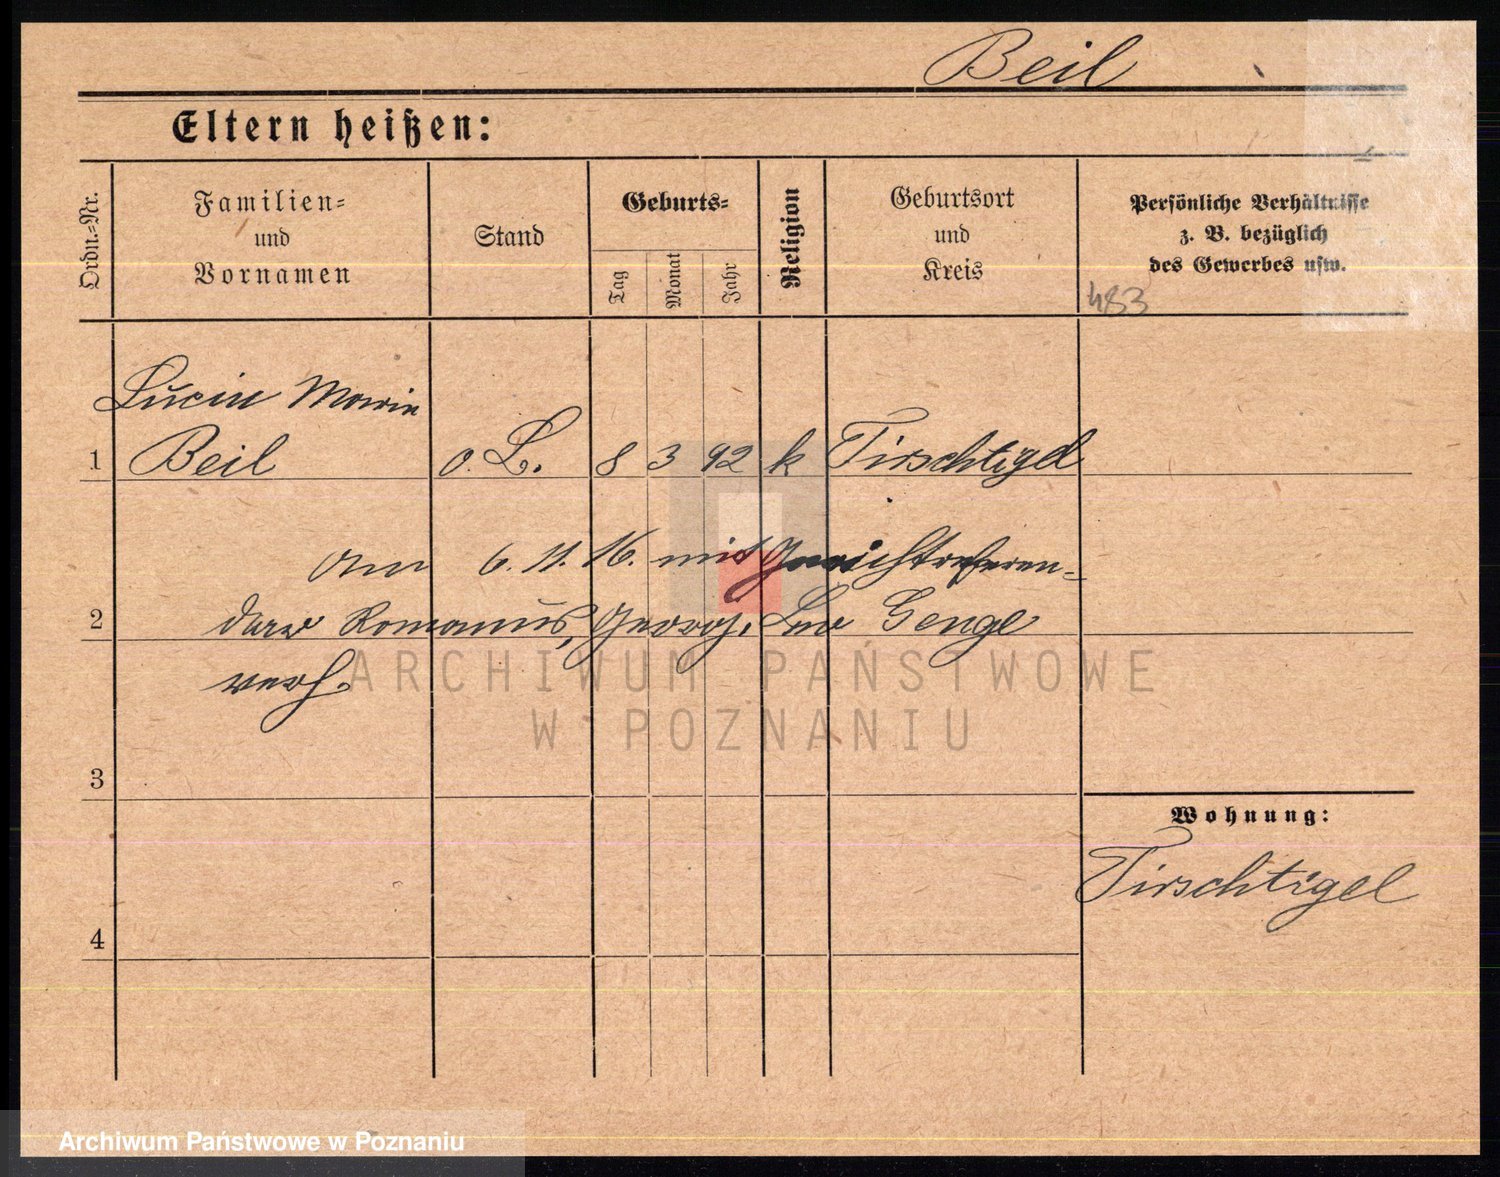 Beil
Eltern heißen:
Ordn.-Nr.
Familien-
und
Vornamen
Stand
Geburts-
Tag
Monat
Jahr
Religion
Geburtsort
und
Kreis
Persönliche Verhältnisse
z. B. bezüglich
des Gewerbes usw.
483
Lucie Marie
1 Beil o. L. 8 3 92 k Tirschtigel
Am 6. 11. 16. mit Gerichtsreferen-
2 dar Romanus, Georg, Leo Genge
verh.
3
Wohnung:
Tirschtigel
4
ARCHIWUM PAŃSTWOWE
W POZNANIU
Archiwum Państwowe w Poznaniu